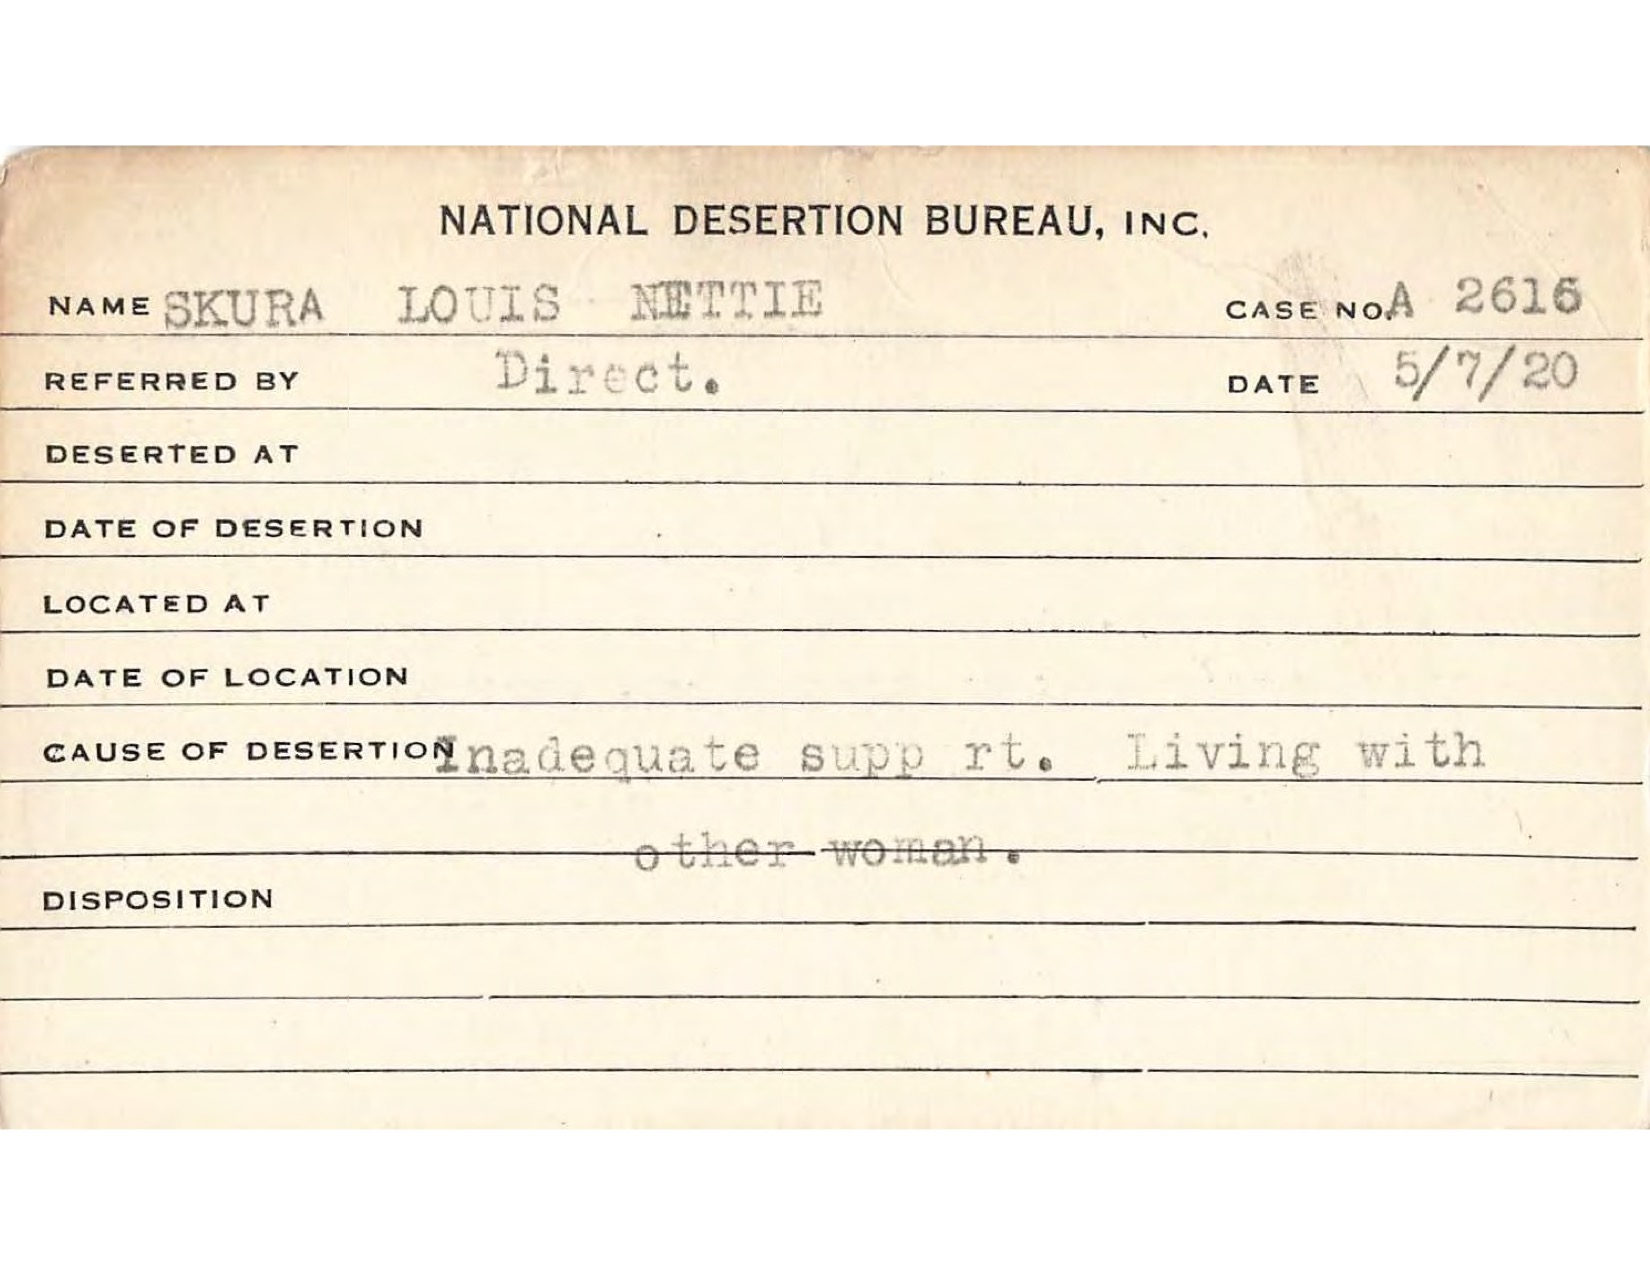 NATIONAL DESERTION BUREAU, INC.
NAME SKURA LOUIS NETTIE CASE NO. A 2616
REFERRED BY Direct. DATE 5/7/20
DESERTED AT
DATE OF DESERTION
LOCATED AT
DATE OF LOCATION
CAUSE OF DESERTION Inadequate supp rt. Living with
other woman.
DISPOSITION